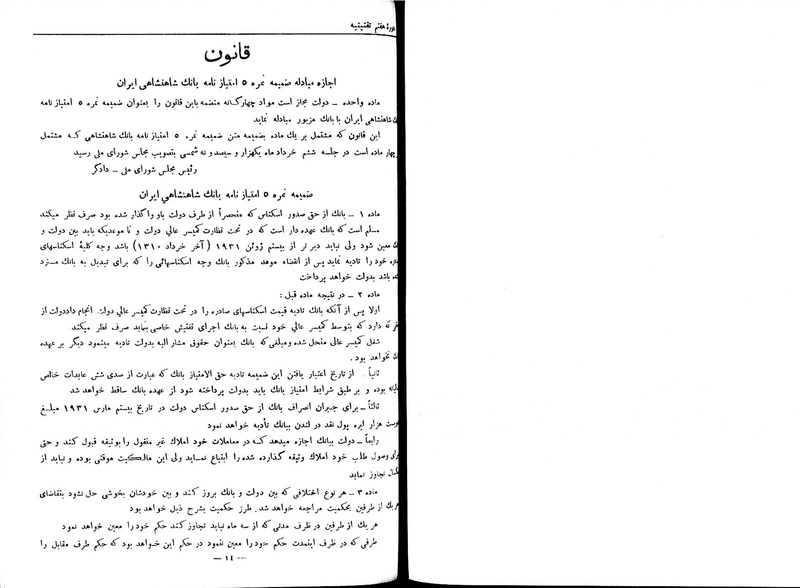 دورهٔ هفتم تقنینیه
قانون
اجازه مبادله ضمیمه نمره ۵ امتیاز نامه بانك شاهنشاهی ایران
ماده واحده ـ دولت مجاز است مواد چهارگانه منضمه باین قانون را بعنوان ضمیمه نمره ۵ امتیاز نامه
شاهنشاهی ایران با بانك مزبور مبادله نماید
این قانون که مشتمل بر یك ماده بضمیمه متن ضمیمه نمره ۵ امتیاز نامه بانك شاهنشاهی که مشتمل
چهار ماده است در جلسه ششم خرداد ماه یکهزار و سیصد و نه شمسی بتصویب مجلس شورای ملی رسید
رئیس مجلس شورای ملی ـ دادگر
ضمیمه نمره ۵ امتیاز نامه بانك شاهنشاهی ایران
ماده ۱ ـ بانك از حق صدور اسکناس که منحصراً از طرف دولت باو واگذار شده بود صرف نظر میکند
مسلم است که بانك عهده دار است که در تحت نظارت کمیسر عالی دولت و تا موعدیکه باید بین دولت و
معین شود ولی نباید دیرتر از بیستم ژوئن ۱۹۳۱ (آخر خرداد ۱۳۱۰) باشد وجه کلیهٔ اسکناسهای
خود را تادیه نماید پس از انقضاء موعد مذکور بانك وجه اسکناسهائی را که برای تبدیل به بانك مسترد
باشد بدولت خواهد پرداخت
ماده ۲ ـ در نتیجه ماده قبل :
اولا پس از آنکه بانك تادیه قیمت اسکناسهای صادره را در تحت نظارت کمیسر عالی دولت انجام داد دولت از
که دارد که بتوسط کمیسر عالی خود نسبت به بانك اجرای تفتیش خاصی بنماید صرف نظر میکند
شغل کمیسر عالی منحل شده و مبلغی که بانك بعنوان حقوق مشارالیه بدولت تادیه مینمود دیگر بر عهده
نخواهد بود .
ثانیاً ـ از تاریخ اعتبار یافتن این ضمیمه تادیه حق الامتیاز بانك که عبارت از صدی شش عایدات خالص
بوده و بر طبق شرایط امتیاز بانك باید بدولت پرداخته شود از عهده بانك ساقط خواهد شد
ثالثاً ـ برای جبران انصراف بانك از حق صدور اسکناس دولت در تاریخ بیستم مارس ۱۹۳۱ مبلغ
دویست هزار لیره پول نقد در لندن ببانك تأدیه خواهد نمود
رابعاً ـ دولت ببانك اجازه میدهد که در معاملات خود املاك غیر منقول را بوثیقه قبول کند و حق
برای وصول طلب خود املاك وثیقه گذارده شده را ابتیاع نماید ولی این مالکیت موقتی بوده و نباید از
یکسال تجاوز نماید
ماده ۳ ـ هر نوع اختلافی که بین دولت و بانك بروز کند و بین خودشان بخوشی حل نشود بتقاضای
هر یك از طرفین بحکمیت مراجعه خواهد شد. طرز حکمیت بشرح ذیل خواهد بود
هر یك از طرفین در ظرف مدتی که از سه ماه نباید تجاوز کند حکم خود را معین خواهد نمود
طرفی که در ظرف اینمدت حکم خود را معین ننمود در حکم این خواهد بود که حکم طرف مقابل را
— ۱٤ —